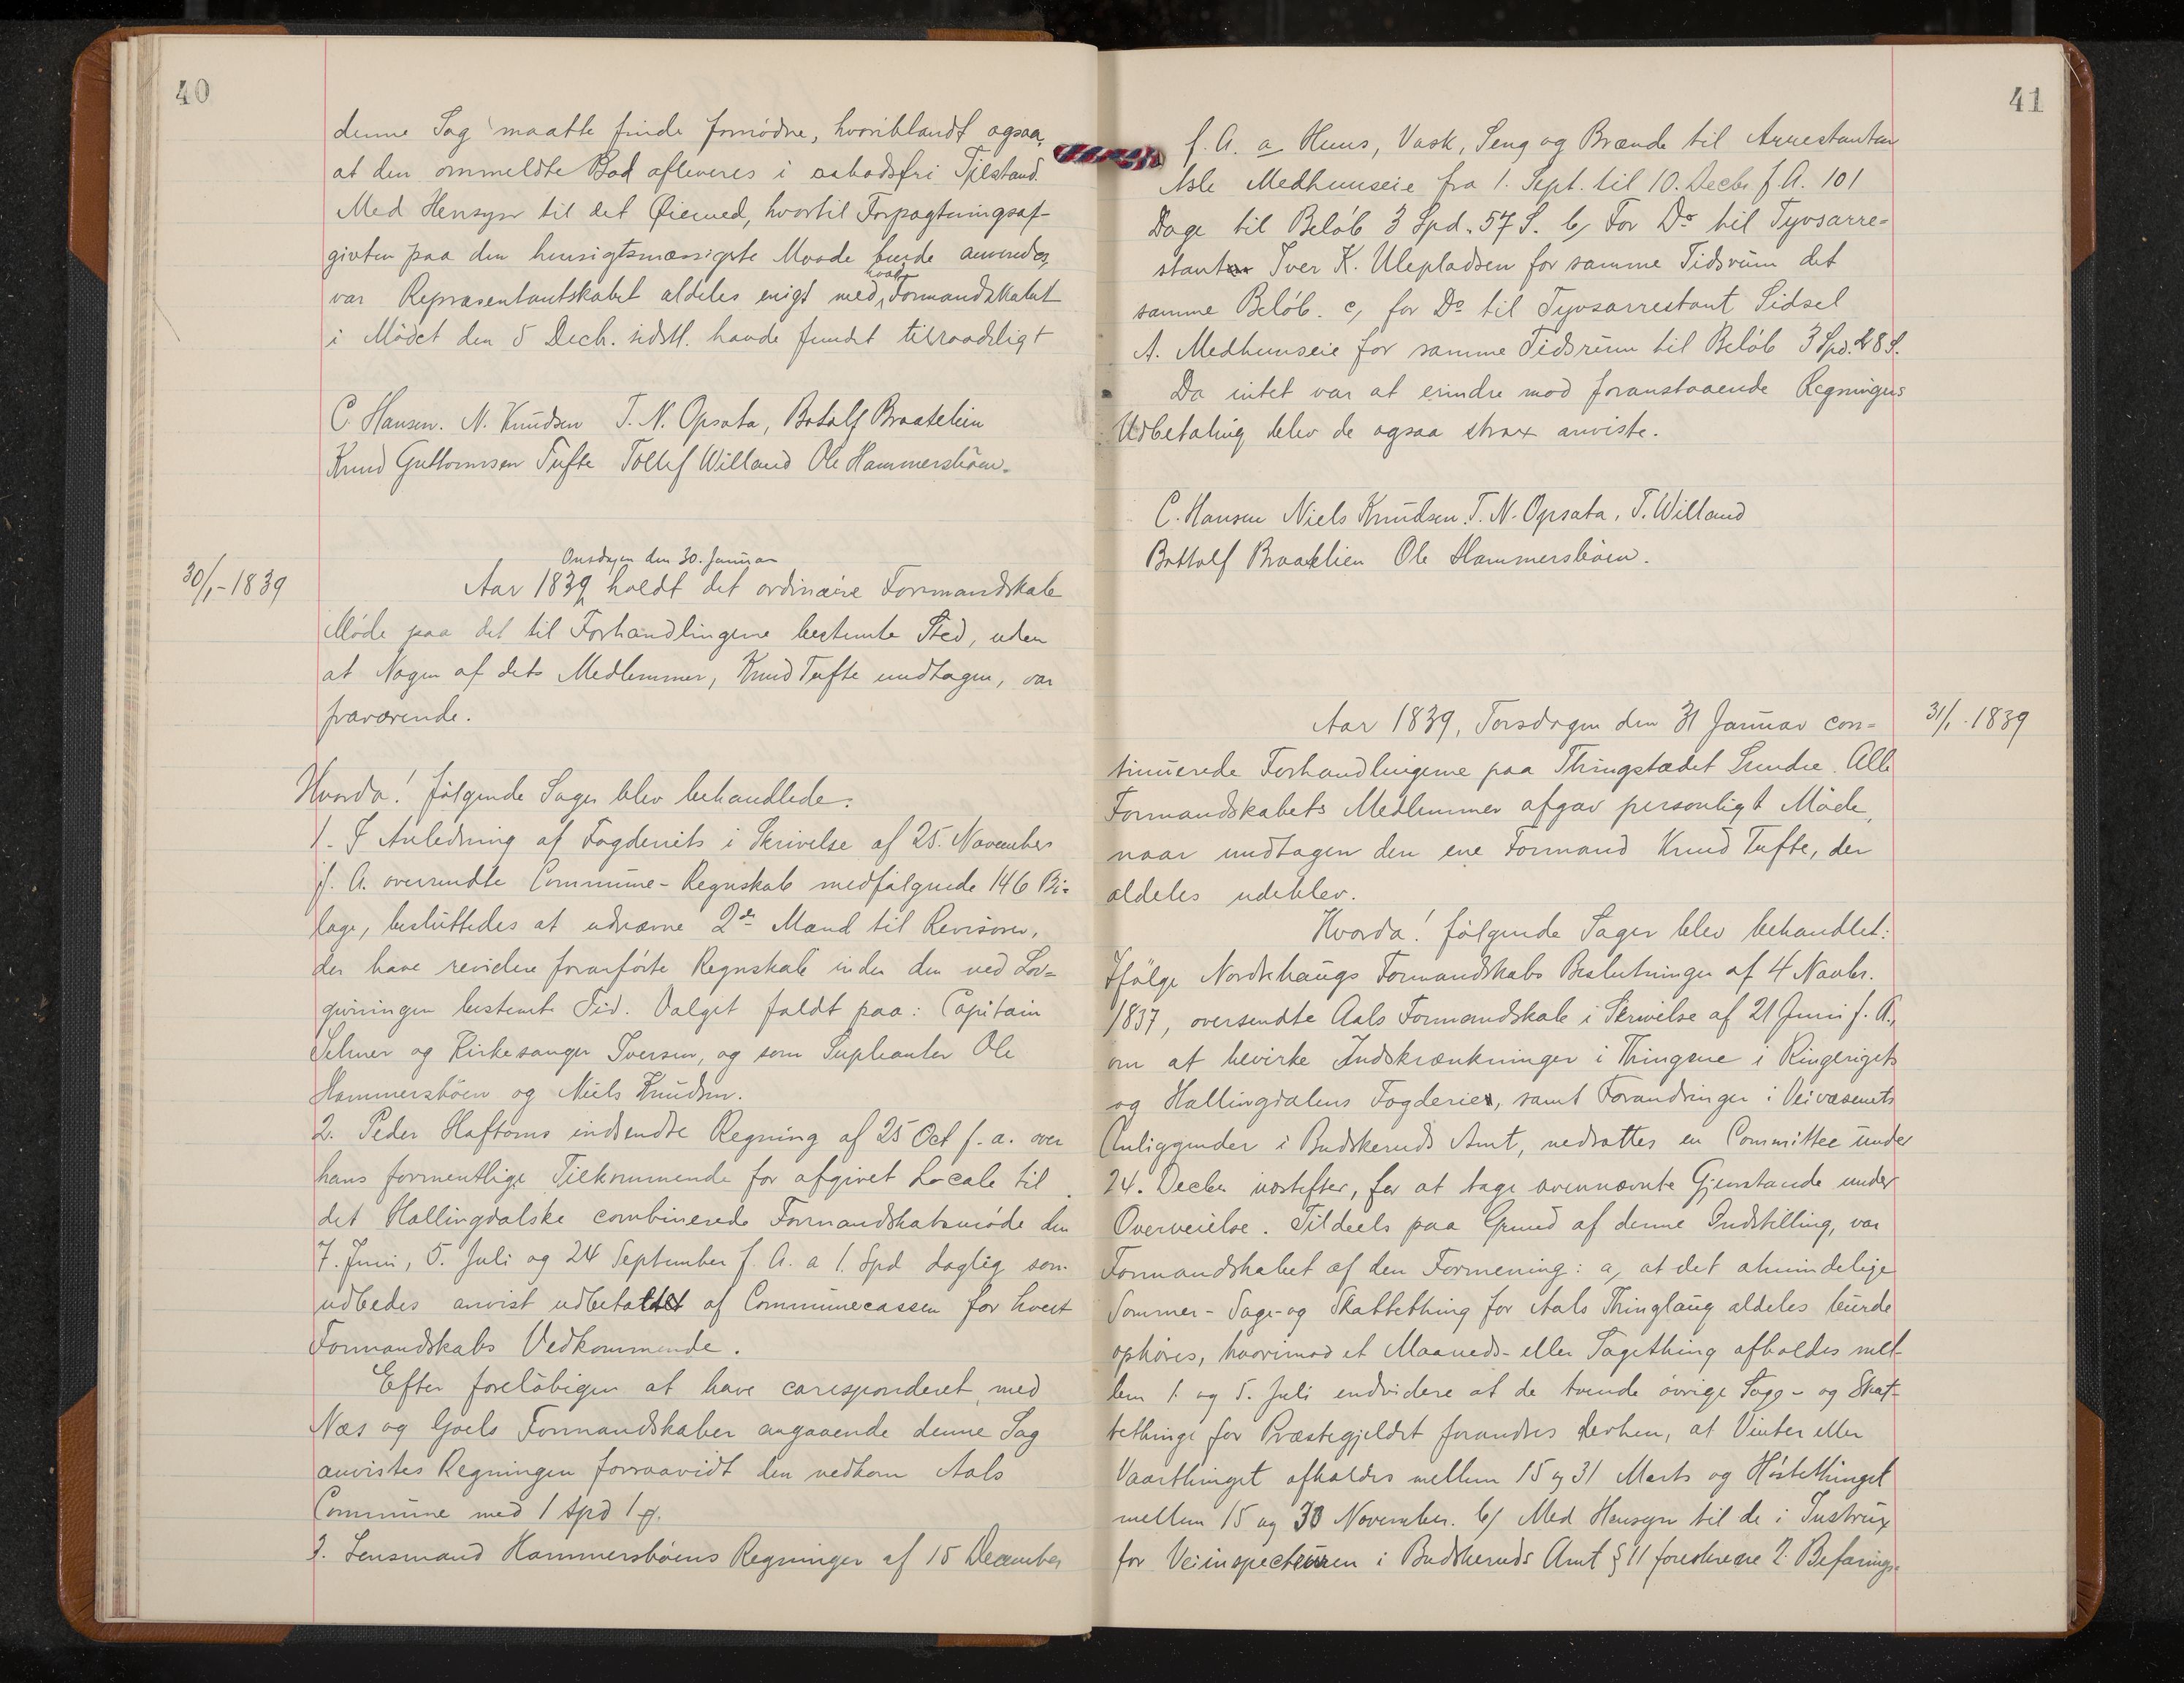 40
denne Sag maatte finde fornødne, hvoriblandt ogsaa,
at den ommeldte Bod afleveres i aabodsfri Tilstand.
Med Hensyn til det Øiemed, hvortil Forpagtningsaf-
givten paa den hensigtsmæssigste Maade burde anvendes,
hvad
var Repræsentantskabet aldeles enigt med, Formandskabet
i Mödet den 5 Decb. sidstl. havde fundet tilraadeligt
C. Hansen. N. Knudsen T. N. Opsata, Botolf Braatelien
Knud Guttormsen Tufte Tollef Willand Ole Hammersböen.
30/1-1839
Onsdagen den 30. Januar
Aar 1839 holdt det ordinære Formandskab
Möde paa det til Forhandlingerne bestemte Sted, uden
at Nogen af dets Medlemmer, Knud Tufte undtagen, var
fraværende.
Hvorda! fölgende Sager blev behandlede:
1. I Anledning af Fogderiets i Skrivelse af 25. November
f. A. oversendte Commune-Regnskab medfölgende 146 Bi-
lage, besluttedes at udnævne 2de Mænd til Revisorer,
der have revidere foranförte Regnskab inden den ved Lov-
givningen bestemte Tid. Valget faldt paa: Capitain
Selmer og Kirkesanger Iversen, og som Supleanter Ole
Hammersböen og Niels Knudsen.
2. Peder Haftorns indsendte Regning af 25 Oct f. a. over
hans formentlige Tilkommende for afgivet Locale til
det Hallingdalske combinerede Formandskabsmöde den
7. Juni, 5. Juli og 24 September f. A. a 1. Spd daglig som
udbedes anvist udbetaltet af Communecassen for hvert
Formandskabs Vedkommende.
Efter forelöbigen at have coresponderet med
Næs og Goels Formandskaber angaaende denne Sag
anvistes Regningen forsaavidt den vedkom Aals
Commune med 1 Spd
3. Lensmand Hammersböens Regninger af 15 December
41
f. A. a Huus, Vask, Seng og Brænde til Arrestanten
Asle Medhuuseie fra 1. Sept. til 10. Decbr f. A. 101
Dage til Belöb 3 Spd. 57 S. b, For Do til Tyvsarre-
stanten Iver K. Ulepladsen for samme Tidsrum det
samme Belöb. c, for Do til Tyvsarrestant Sidsel
A. Medhuuseie for samme Tidsrum til Belöb 3 Spd. 28 S.
Da intet var at erindre mod foranstaaende Regningers
Udbetaling blev de ogsaa strax anviste.
C. Hansen Niels Knudsen. T. N. Opsata, T. Willand
Bottolf Braatelien Ole Hammersböen.
31/1-1839
Aar 1839, Torsdagen den 31 Januar con-
tinuerede Forhandlingerne paa Thingstædet Sundre. Alle
Formandskabets Medlemmer afgav personligt Möde,
naar undtagen den ene Formand Knud Tufte, der
aldeles udeblev.
Hvorda! fölgende Sager blev behandlet:
Ifölge Nordrehaugs Formandskabs Beslutninger af 4 Novbr.
1837, oversendte Aals Formandskab i Skrivelse af 21 Juni f. A.,
om at bevirke Indskrænkninger i Thingene i Ringerigets
og Hallingdalens Fogderier, samt Forandringer i Veivæsenets
Anliggender i Budskeruds Amt, nedsattes en Committee under
24. Decbr næstefter, for at tage ovennævnte Gjenstande under
Overveielse. Tildeels paa Grund af denne Indstilling, var
Formandskabet af den Formening: a, at det almindelige
Sommer-Sage-og Skattething for Aals Thinglaug aldeles burde
ophöres, hvorimod et Maaneds- eller Sagething afholdes mel-
lem 1. og 5. Juli endvidere at de tvende övrige Sage- og Skat-
tethinge for Præstegjeldet forandres derhen, at Vinter eller
Vaarthinget afholdes mellem 15 og 31 Marts og Hösthinget
mellem 15 og 30 November. b/ Med Hensyn til de i Instrux
for Veiinspecteuren i Budskeruds Amt § 11 foreskrevne 2. Befarings-